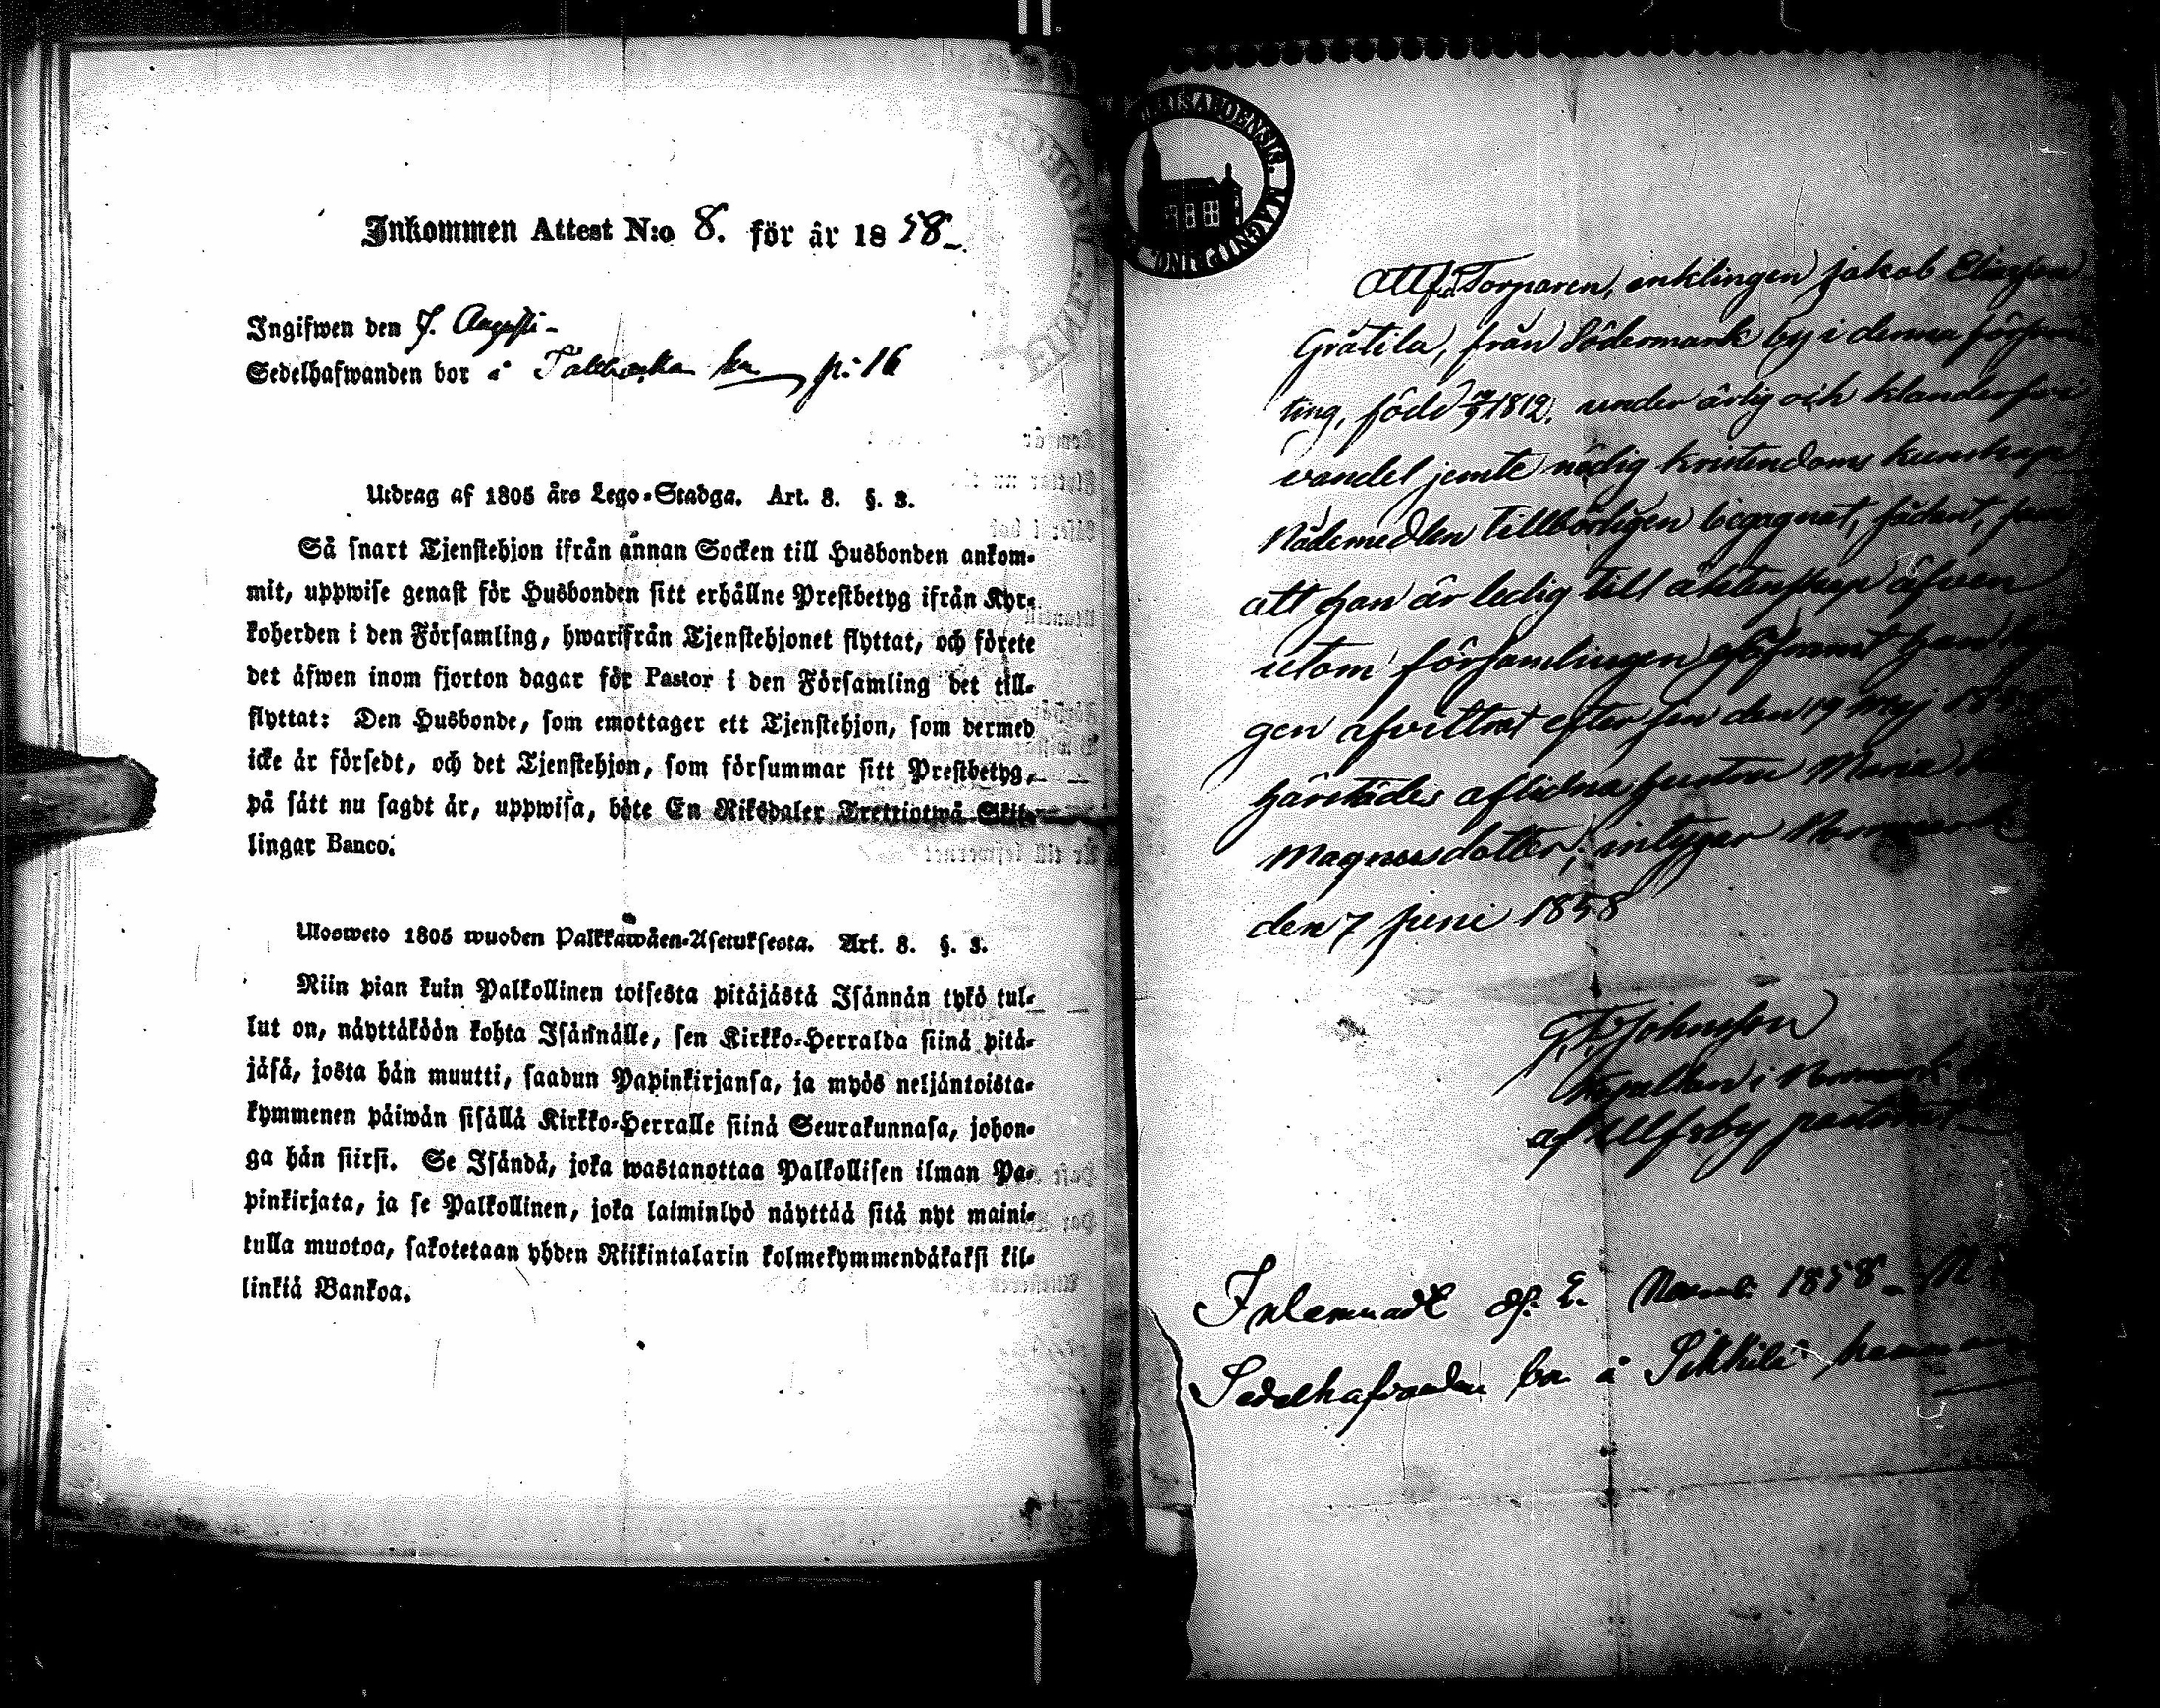 Inkommen Attest N:o 8. för år 1858
Ingifwen den 7. Augusti
Sedelhafwanden bor å Tallbacka p: 16
Utdrag af 1805 års Lego-Stadga. Art. 8. §. 3.
Så snart Tjenstehjon ifrån annan Socken till Husbonden ankom-
mit, uppwise genast för Husbonden sitt erhållne Prestbetyg ifrån Kyr-
koherden i den Församling, hwarifrån Tjenstehjonet flyttat, och förete
det äfwen inom fjorton dagar för Pastor i den Församling det till-
flyttat: Den Husbonde, som emottager ett Tjenstehjon, som dermed
icke är försedt, och det Tjenstehjon, som försummar sitt Prestbetyg,
på sätt nu sagdt är, uppwisa, böte En Riksdaler Trettiotwå Skil-
lingar Banco.
Ulosweto 1805 wuoden Palkkawäen-Asetuksesta. Art. 8. §. 3.
Niin pian kuin Palkollinen toisesta pitäjästä Isännän tykö tul-
lut on, näyttäköön kohta Isännälle, sen Kirkko-Herralda siinä pitä-
jäsä, josta hän muutti, saadun Papinkirjansa, ja myös neljäntoista-
kymmenen päiwän sisällä Kirkko-Herralle siinä Seurakunnasa, johon-
ga hän siirsi. Se Isändä, joka wastanottaa Palkollisen ilman Pa-
pinkirjata, ja se Palkollinen, joka laiminlyö näyttää sitä nyt maini-
tulla muotoa, sakotetaan yhden Riikintalarin kolmekymmendäkaksi kil-
linkiä Bankoa.
Att f.d. Torparen, enklingen Jakob Eliasson
Gråtila, från Södermark by i denna församl
ting, född 1812, under ärlig och klanderfri
vandel jemte nödig kristendoms kunskap
Nådemedlen tillbörligen begagnat, sådant,
att han är ledig till äktenskap äfven
utom församlingen såframt han
gen afvittrat efter sin den 19 Maj 18
härstädes aflidna hustru Maria
Magnusdotter, intygar Norrmark
den 7 Juni 1858
Johnsson
Kapellan i Norrmark
af Ulfsby pastorat
Inlemnadt d. 2. Novemb. 1858
Sedelhafvanden bor å Sikkilä hemman